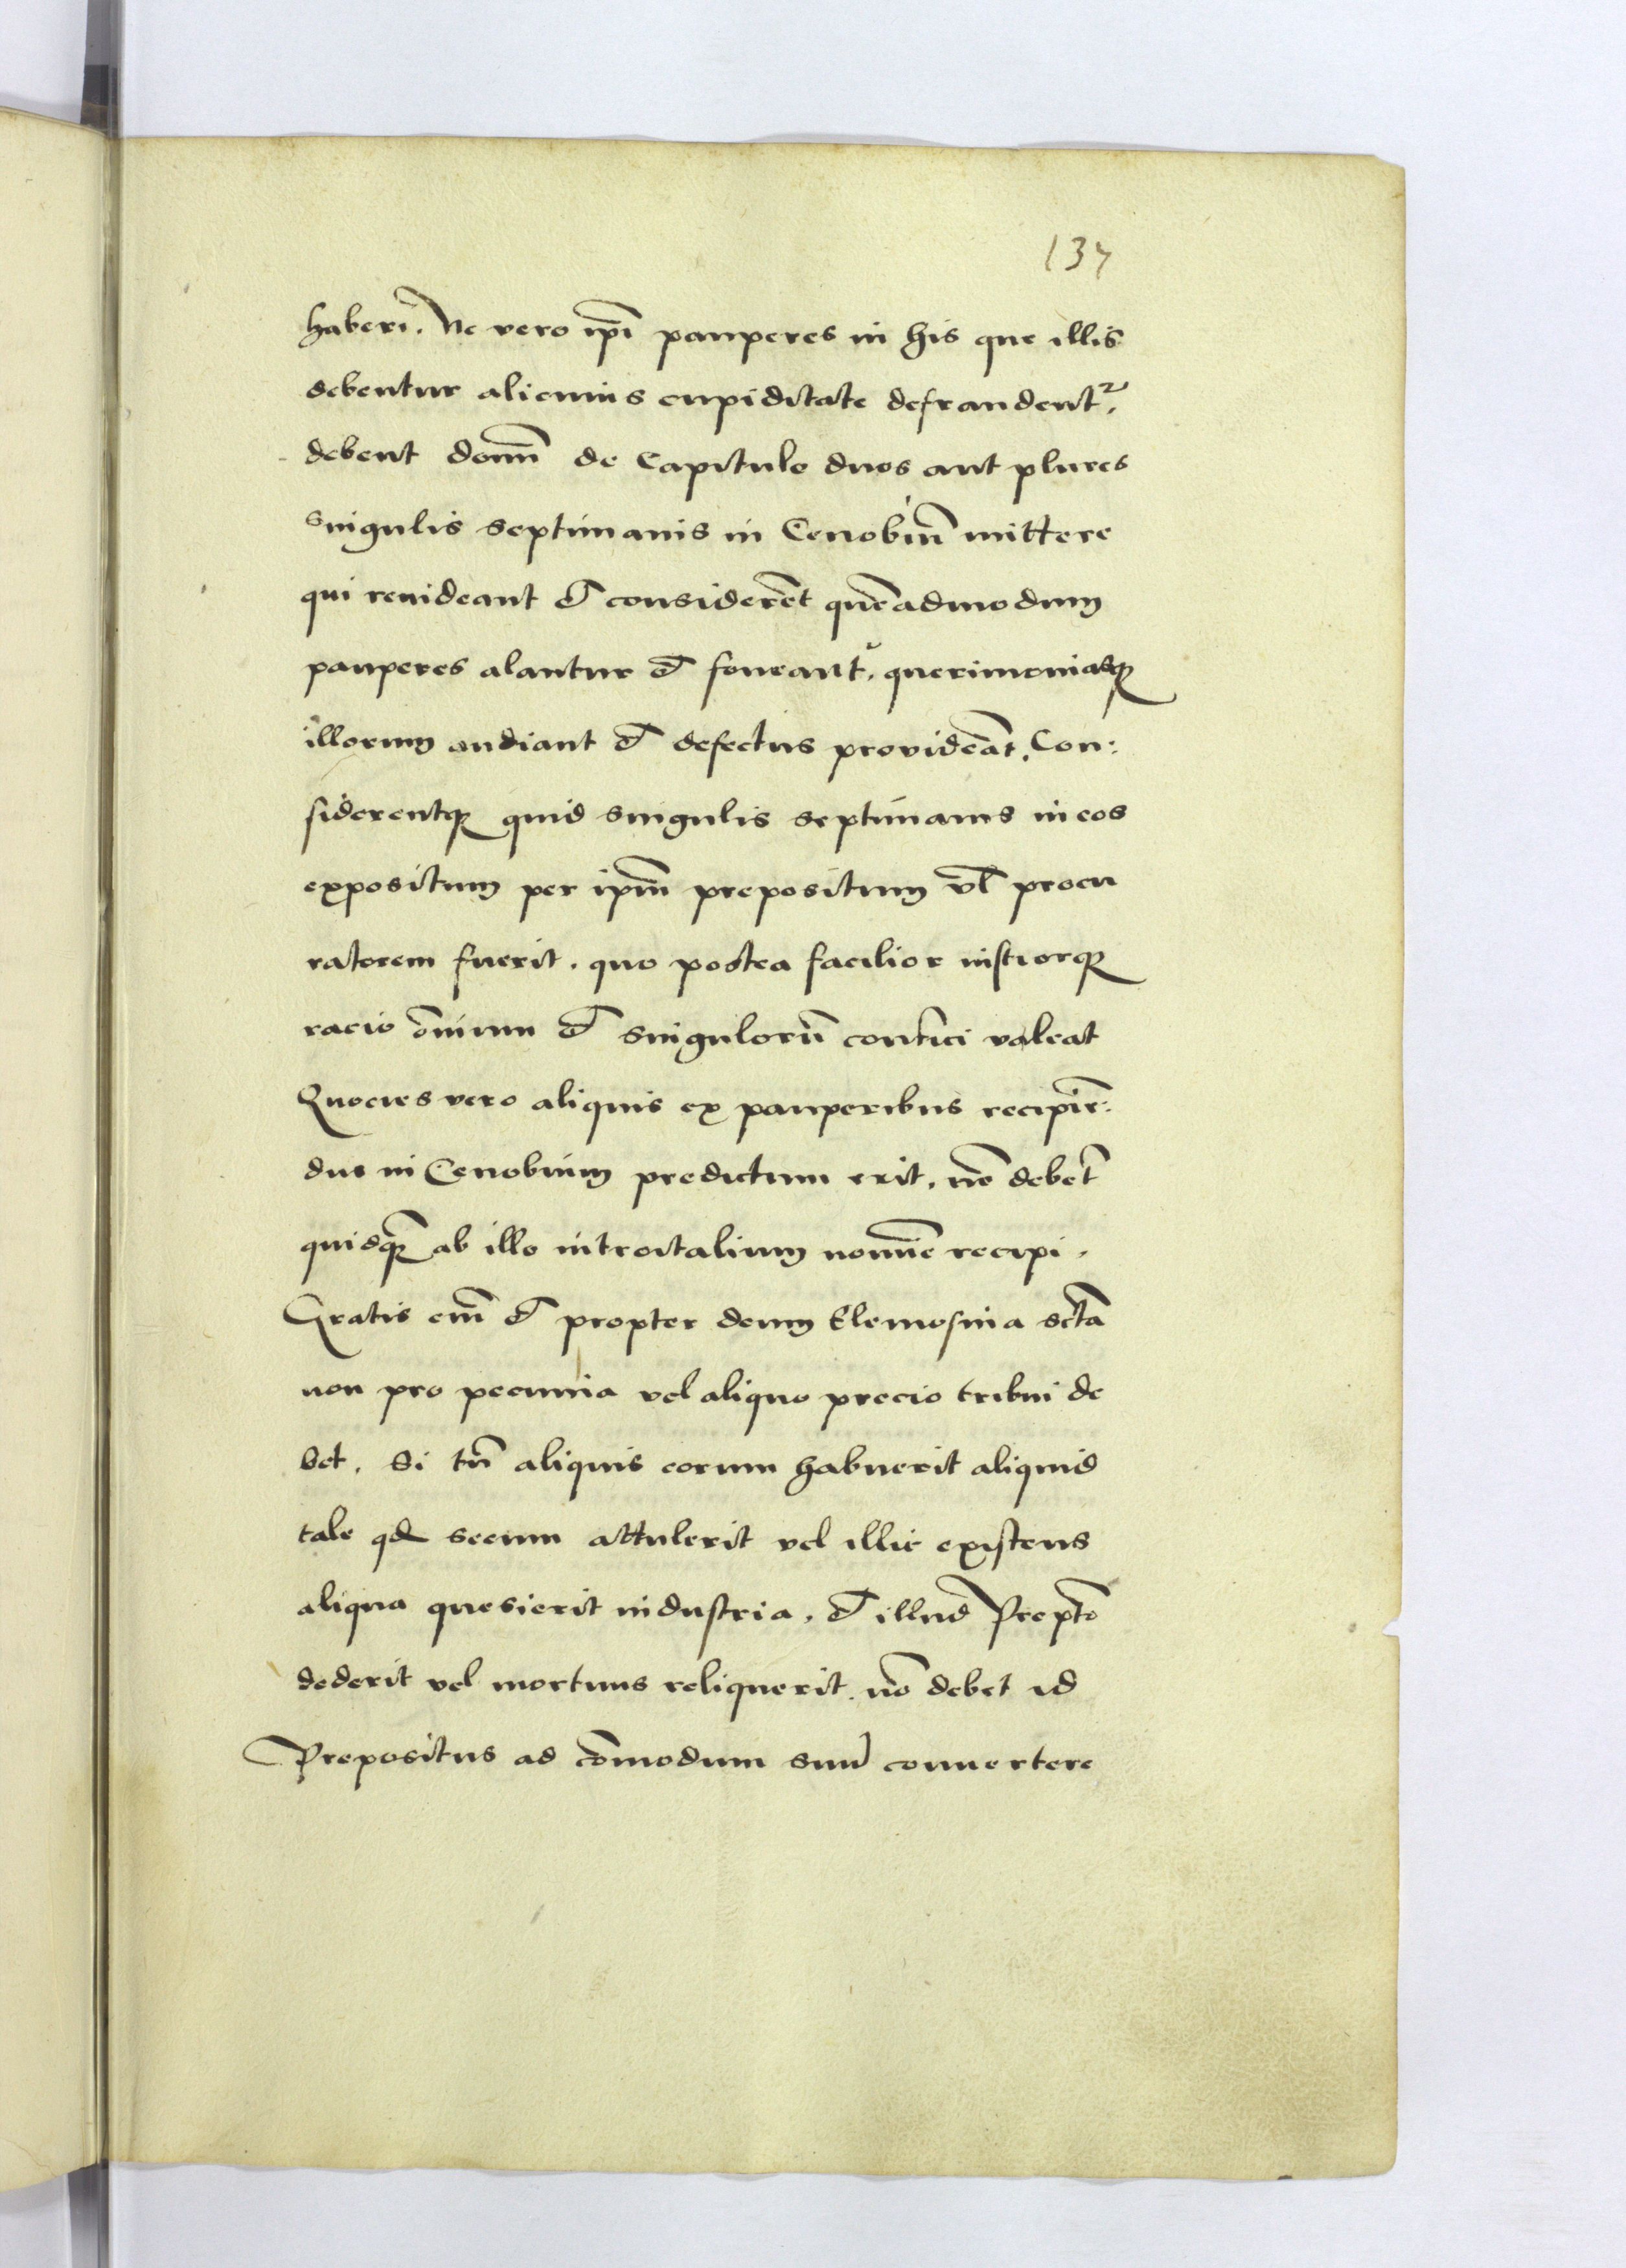 137
haberi. Ne vero ip̄i pauperes in his que illis
debentur alicuius cupiditate defraudent᷑.
debent domī de Capitulo duos aut plures
singulis septimanis in Cenobiū mittere
qui reuideant et considerēt quēadmodum
pauperes alantur et foueant᷑, querimoniasqꝫ
illorum audiant et defectus provideāt. Con:
siderentqꝫ quid singulis septimanis in eos
expositum per ipm̄ prepositum vl̄ procu
ratorem fuerit. quo postea facilior iustiorqꝫ
racio om̄ium et singulorū confici valeat
Quocies vero aliquis ex pauperibus recipiē:
dus in Cenobium predictum erit. nō debet
quidqꝫ ab illo introitalium nomīe recipi.
Gratis em̄ et propter deum Elemosina sc̄ta
non pro pecunia vel aliquo precio tribui de
bet. Si tn̄ aliquis eorum habuerit aliquid
tale qd̄ secum attulerit vel illic existens
aliqua quesierit industria. et illud Prepto̅
dederit vel mortuus reliquerit. nō debet id
Prepositus ad cōmodum suū conuertere